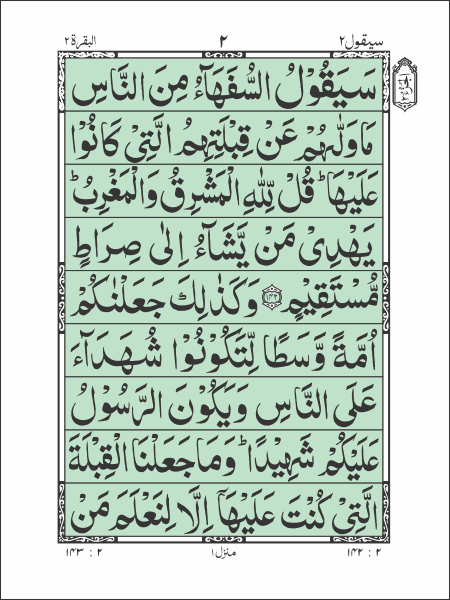 سيقول ٢
٢
البقرة ٢
سَيَقُوْلُ السُّفَهَآءُ مِنَ النَّاسِ
مَا وَلّٰىهُمْ عَنْ قِبْلَتِهِمُ الَّتِىْ كَانُوْا
عَلَيْهَا ؕ قُلْ لِّلّٰهِ الْمَشْرِقُ وَالْمَغْرِبُ ؕ
يَهْدِىْ مَنْ يَّشَآءُ اِلٰى صِرَاطٍ
مُّسْتَقِيْمٍ ﴿۱۴۲﴾ وَكَذٰلِكَ جَعَلْنٰكُمْ
اُمَّةً وَّسَطًا لِّتَكُوْنُوْا شُهَدَآءَ
عَلَى النَّاسِ وَيَكُوْنَ الرَّسُوْلُ
عَلَيْكُمْ شَهِيْدًا ؕ وَمَا جَعَلْنَا الْقِبْلَةَ
الَّتِىْ كُنْتَ عَلَيْهَآ اِلَّا لِنَعْلَمَ مَنْ
۲ : ۱۴۲
منزل ۱
۲ : ۱۴۳